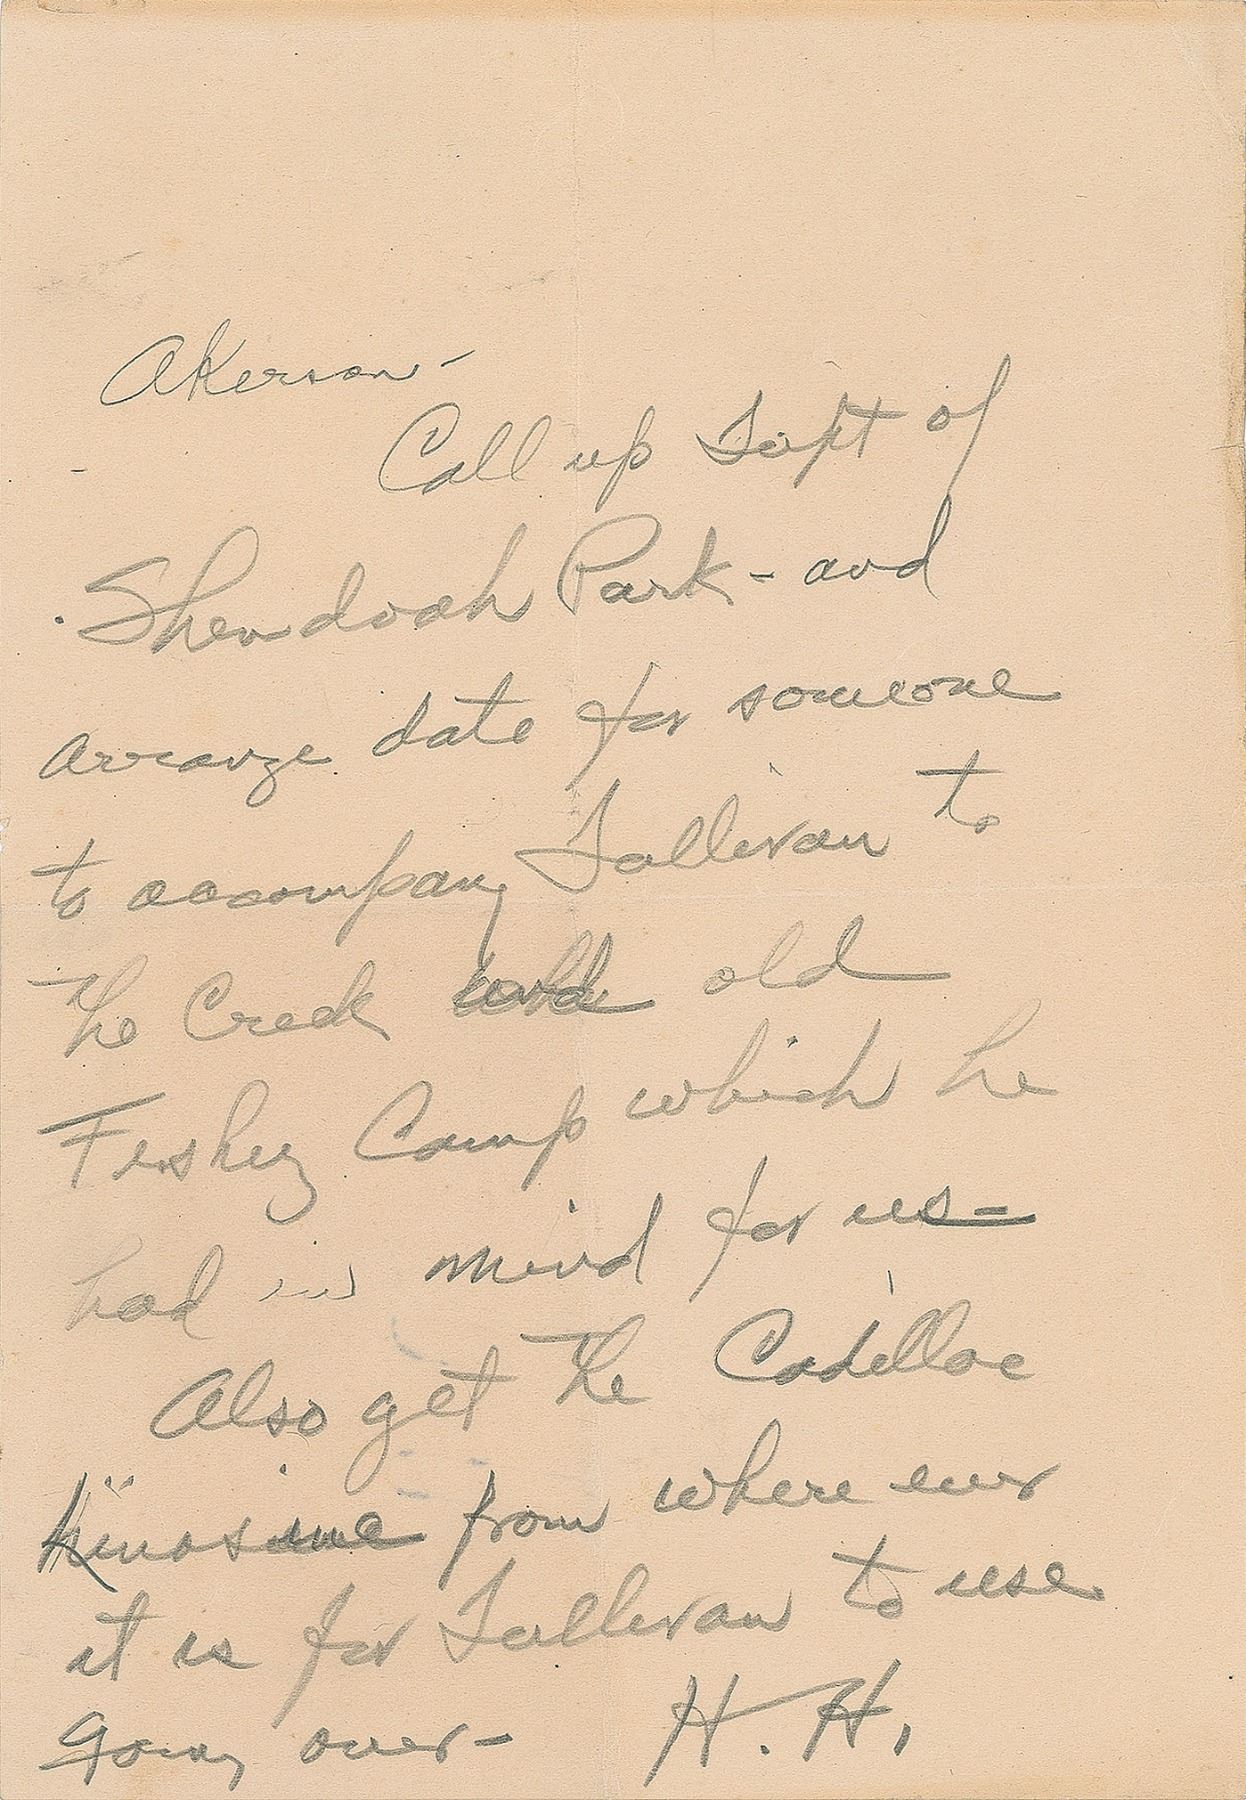 Akerson-
Call up Supt of
Shendoah Park - and
arrange date for someone
to accompany Sullivan to
the Creek old
Fishing Camp which he
had in mind for us-
Also get the Cadillac
limosine from where ever
it is for Sullivan to use
going over- H. H.